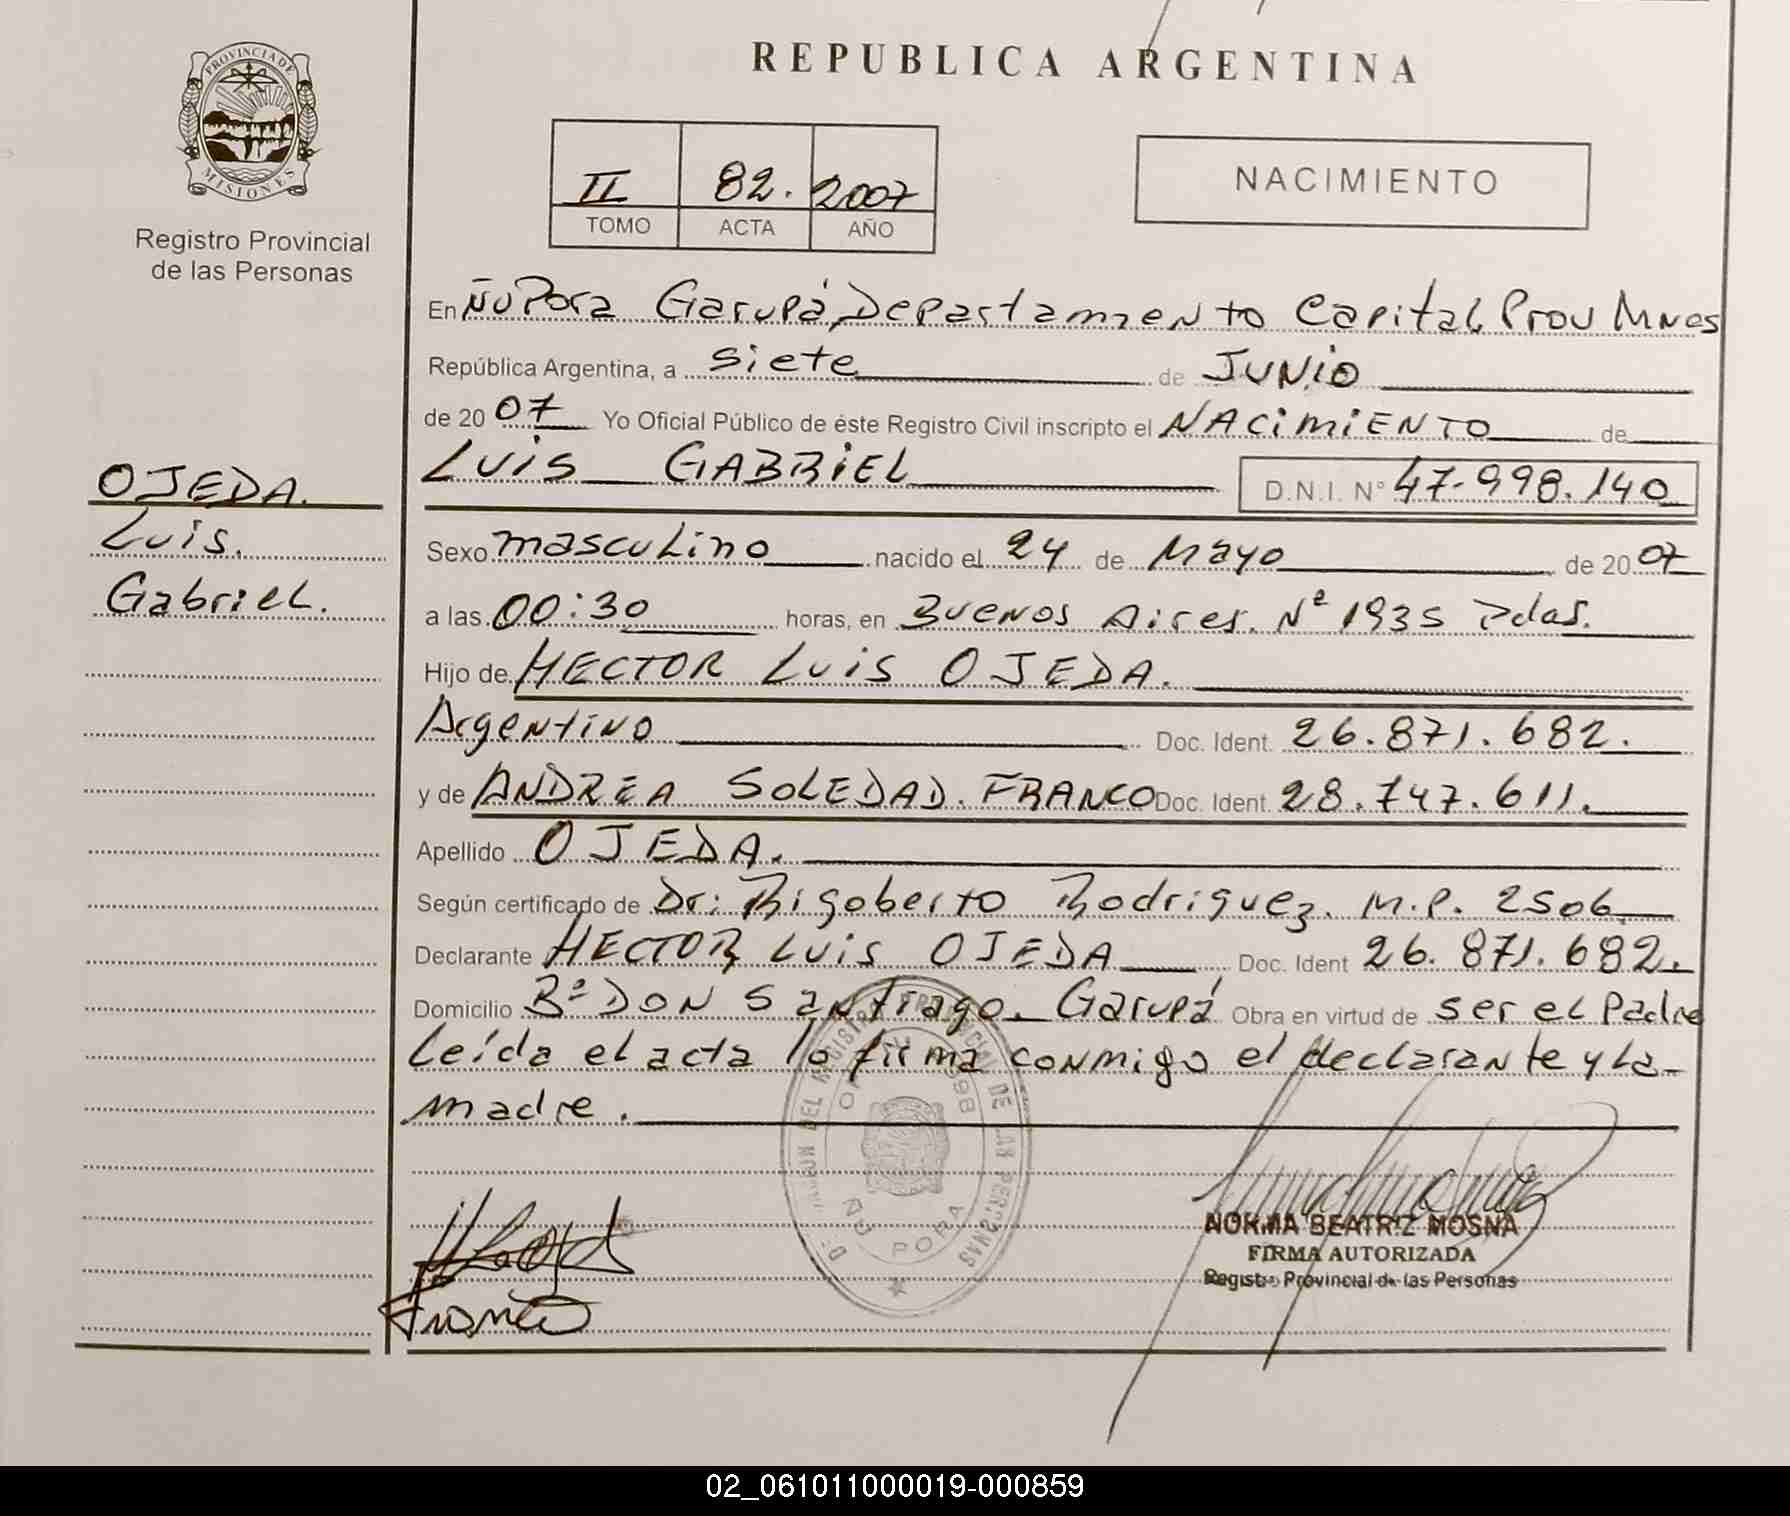 REPUBLICA ARGENTINA
PROVINCIA DE MISIONES
Registro Provincial
de las Personas
II 82. 2007
TOMO ACTA AÑO
NACIMIENTO
En Ñu Pora Garupá, Departamento Capital, Prov Mnes
República Argentina, a siete de JUNIO
de 2007 Yo Oficial Público de éste Registro Civil inscripto el NACIMIENTO de
LUIS GABRIEL D.N.I. Nº 47.998.140
OJEDA.
Luis.
Gabriel.
Sexo masculino nacido el 24 de Mayo de 2007
a las 00:30 horas, en Buenos Aires. Nº 1935 Pdas.
Hijo de HECTOR LUIS OJEDA.
Argentino Doc. Ident. 26.871.682.
y de ANDREA SOLEDAD. FRANCO Doc. Ident. 28.747.611.
Apellido OJEDA.
Según certificado de Dr: Rigoberto Rodriguez. M.P. 2506
Declarante HECTOR LUIS OJEDA Doc. Ident 26.871.682.
Domicilio Bº DON Santiago. Garupá Obra en virtud de ser el Padre
Leída el acta la firma conmigo el declarante y la
madre.
ÑU PORA
NORMA BEATRIZ MOSNA
FIRMA AUTORIZADA
Registro Provincial de las Personas
Franco
02_061011000019-000859